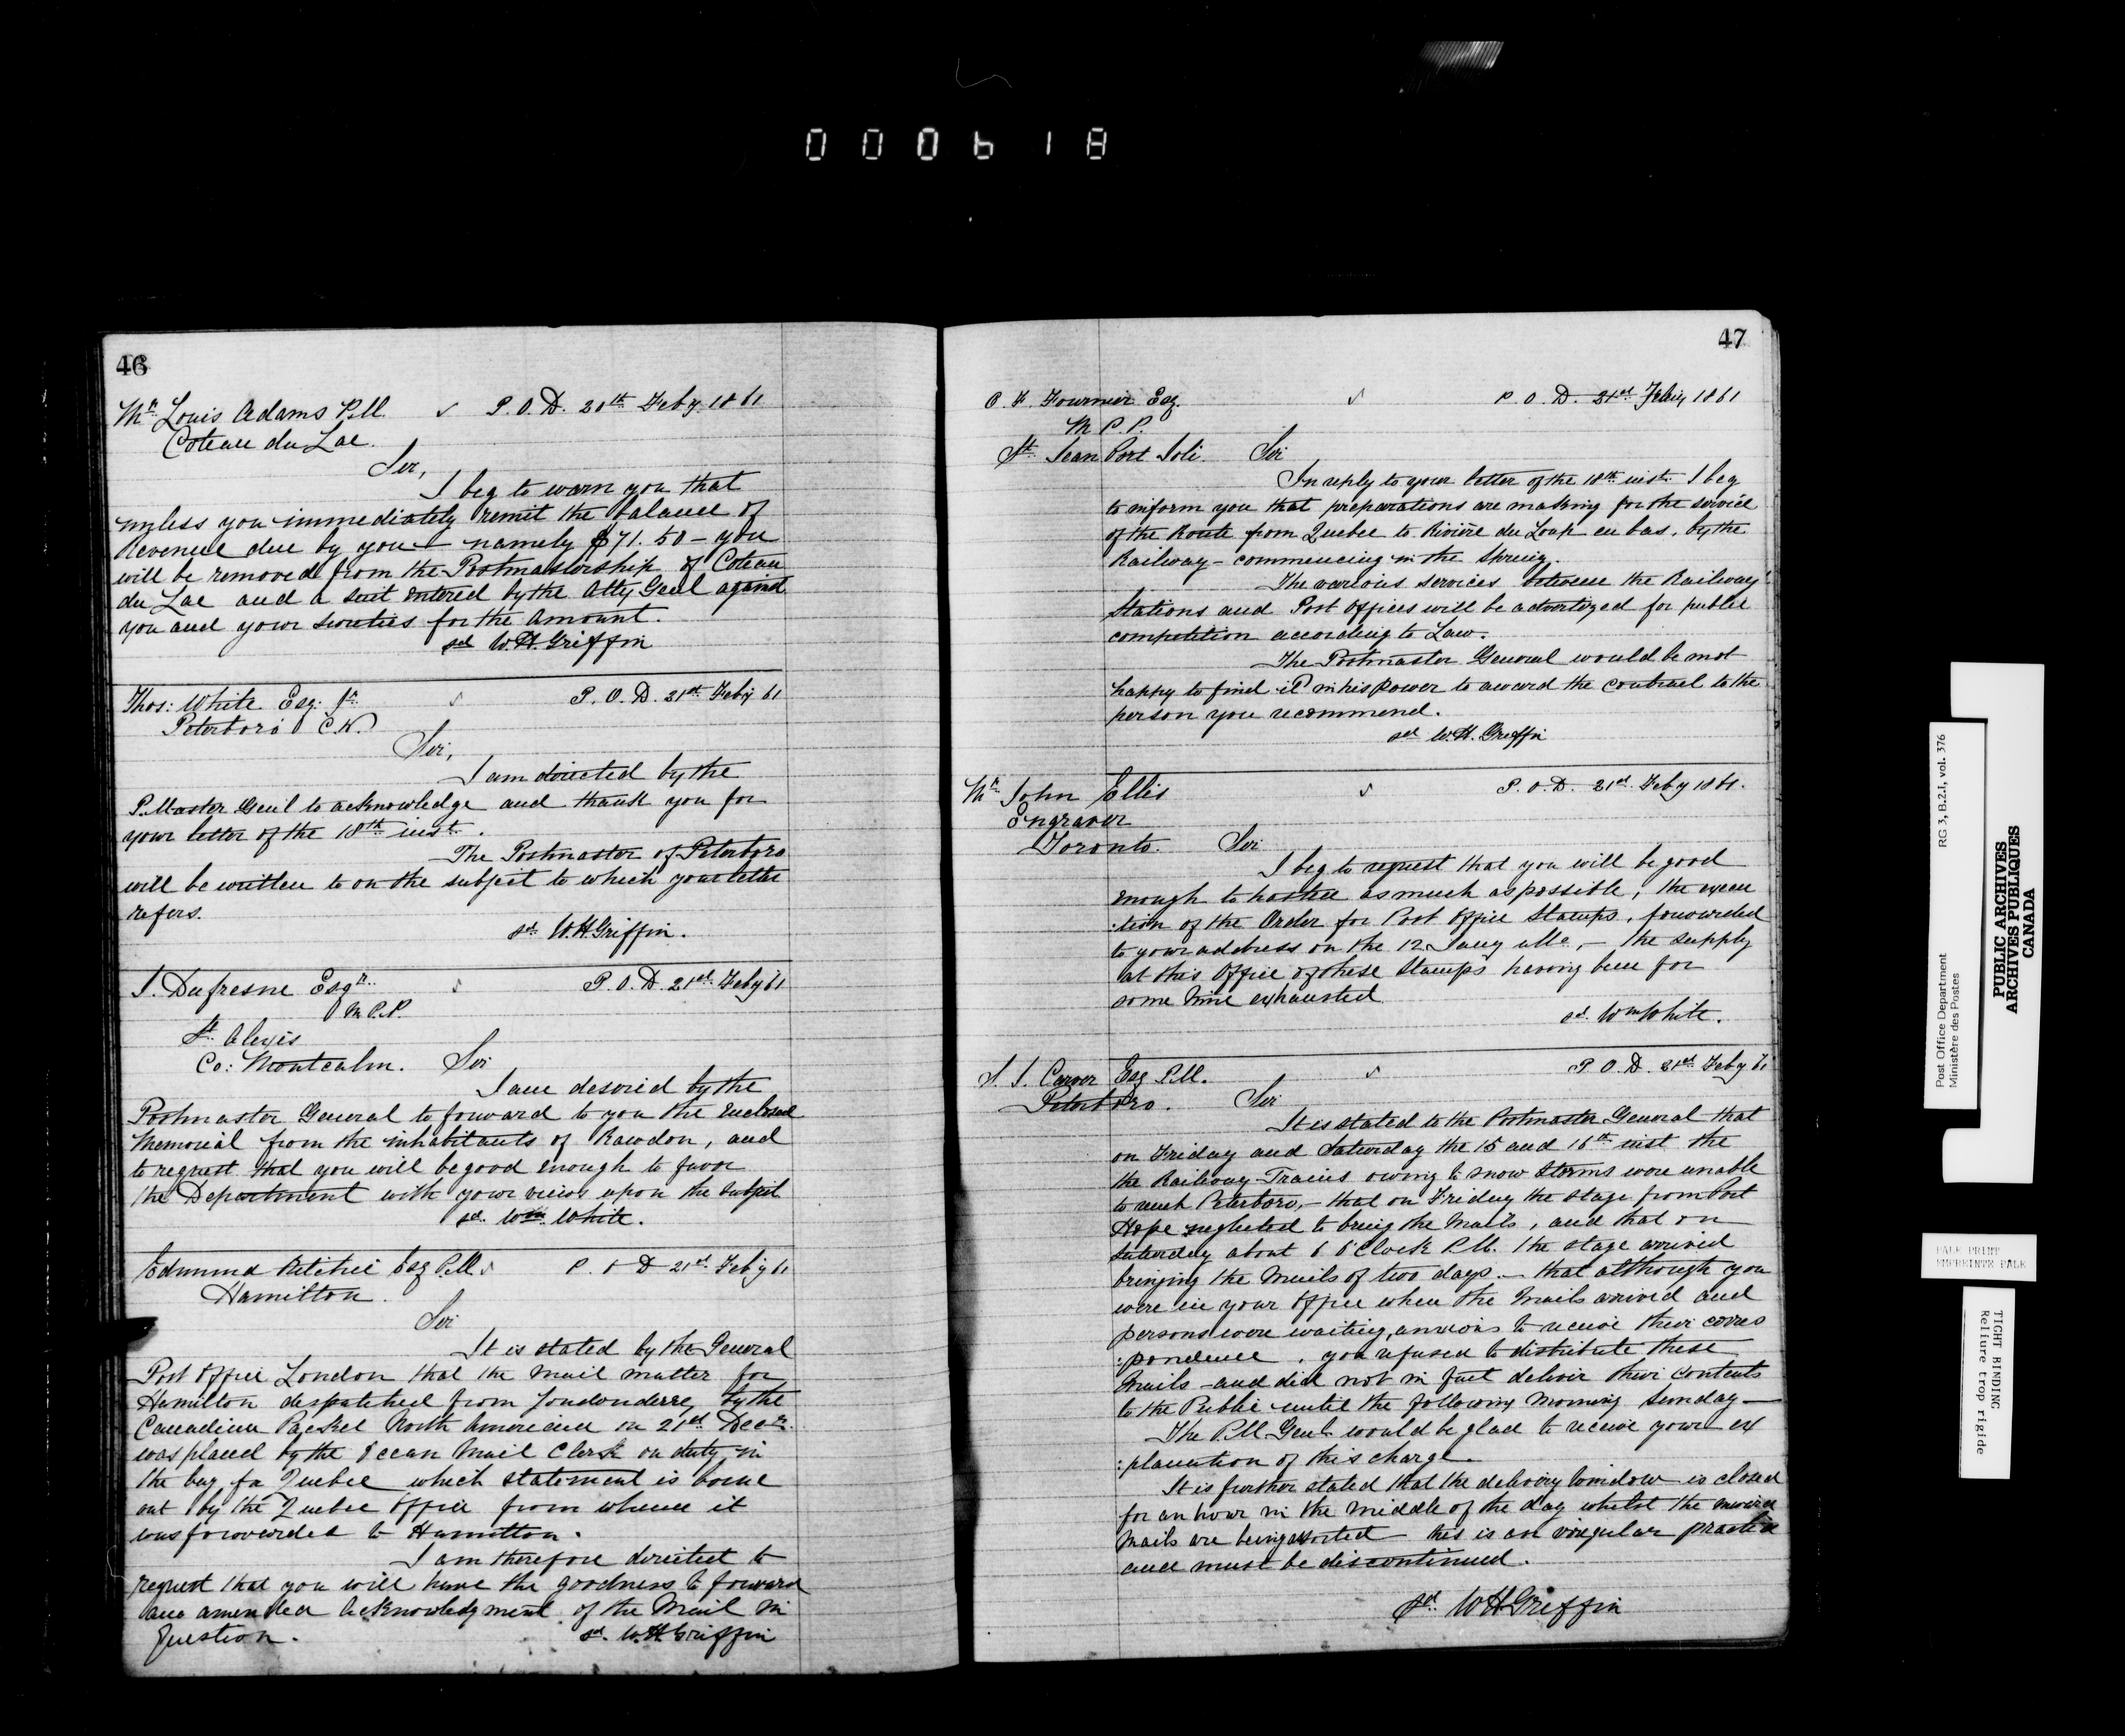 000618
46
Mr Louis Adams P.M. ✓ P.O.D. 20th Feby 1861
Coteau du Lac.
Sir,
I beg to warn you that
unless you immediately remit the balance of
Revenue due by you — namely $71.50 — you
will be removed from the Postmastership of Coteau
du Lac and a suit entered by the Atty Genl against
you and your sureties for the Amount.
sd W.H. Griffin
Thos: White Esq: Jr ✓ P.O.D. 21st Feby 61
Peterboro' C.W.
Sir,
I am directed by the
P.Master Genl to acknowledge and thank you for
your letter of the 18th inst.
The Postmaster of Peterboro
will be written to on the subject to which your letter
refers.
sd W.H Griffin.
J. Dufresne Esqr. ✓ P.O.D. 21st Feby 61
M P.P.
St Alexis
Co: Montcalm. Sir
I am desired by the
Postmaster General to forward to you the enclosed
Memorial from the inhabitants of Rawdon, and
to request that you will be good enough to favor
the Department with your views upon the subject
sd. Wm. White.
Edmund Ritchie Esq P.M. ✓ P. O D 21st Feby 61
Hamilton.
Sir
It is stated by the General
Post Office London that the mail matter for
Hamilton despatched from Londonderry by the
Canadian Packet North American on 21st Decr.
was placed by the Ocean Mail Clerk on duty in
the bag for Quebec which statement is borne
out by the Quebec Office from whence it
was forwarded to Hamilton.
I am therefore directed to
request that you will have the goodness to forward
an amended acknowledgment of the Mail in
Question. sd. W.H Griffin
47
C. F. Fournier Esq. ✓ P.O.D. 21st Feby 1861
M P.P.
St. Jean Port Joli. Sir
In reply to your letter of the 18th inst. I beg
to inform you that preparations are making for the service
of the Route from Quebec to Rivière du Loup en bas, by the
Railway — commencing in the Spring.
The various services between the Railway
Stations and Post Offices will be advertized for public
competition according to Law.
The Postmaster General would be most
happy to find it in his power to award the contract to the
person you recommend.
sd W.H. Griffin
Mr John Ellis ✓ P.O.D. 21st Feby 1861.
Engraver
Toronto. Sir
I beg to request that you will be good
enough to hasten as much as possible, the execu
:tion of the Order for Post Office Stamps, forwarded
to your address on the 12 Jany ulto, — the supply
at this Office of these Stamps having been for
some time exhausted
sd. Wm White.
S. J. Carver Esq P.M. ✓ P.O.D. 21st Feby 61
Peterboro. Sir
It is stated to the Postmaster General that
on Friday and Saturday the 15 and 16th inst the
the Railway Trains owing to snow storms were unable
to reach Peterboro, — that on Friday the stage from Port
Hope neglected to bring the Mails, and that on
Saturday about 6 O'Clock P.M. the stage arrived
bringing the Mails of two days — that although you
were in your Office when the Mails arrived and
persons were waiting, anxious to receive their corres
:pondence, you refused to distribute these
Mails — and did not in fact deliver their contents
to the Public until the following morning Sunday —
The P.M Genl. would be glad to receive your ex
:planation of this charge.
It is further stated that the delivery window is closed
for an hour in the middle of the day whilst the inward
Mails are being assorted — this is an irregular practice
and must be discontinued.
sd. W H Griffin
Post Office Department RG 3, B.2.1, vol. 376
Ministère des Postes
PUBLIC ARCHIVES
ARCHIVES PUBLIQUES
CANADA
PALE PRINT
EMPREINTE PALE
TIGHT BINDING
Reliure trop rigide